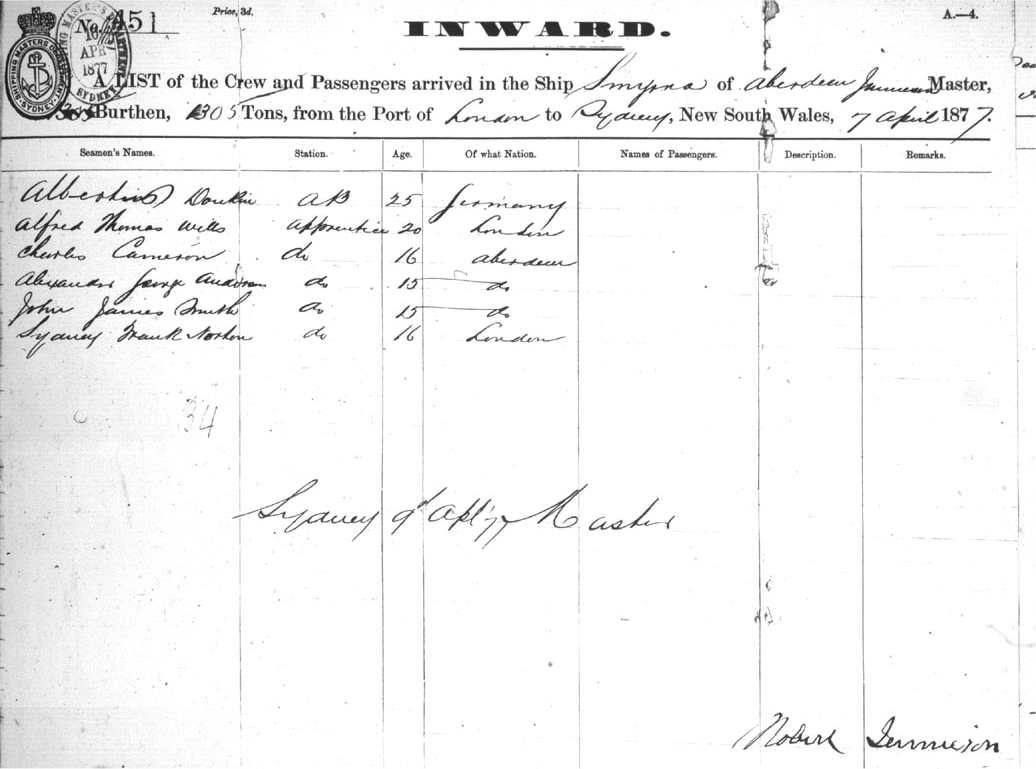 No. 451
Price, 3d.
INWARD.
A.—4.
SHIPPING MASTER'S OFFICE SYDNEY
10 APR 1877
A LIST of the Crew and Passengers arrived in the Ship Smyrna of Aberdeen Master,
Burthen, 1305 Tons, from the Port of London to Sydney, New South Wales, 7 April 1877.
Seamen's Names. Station. Age. Of what Nation. Names of Passengers. Description. Remarks.
AB 25 Germany
Alfred Thomas Wills Apprentice 20 London
Charles Cameron do 16 Aberdeen
Alexander George Anderson do 15 do
John James Smith do 15 do
Sydney Frank Norton do 16 London
34
Sydney 9 Apl 77 Master
Robert